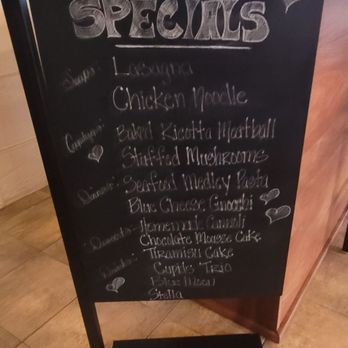 SPECIALS
Soups: Lasagna
Chicken Noodle
Baked Ricotta Meatball
Stuffed Mushrooms
Dinners: Seafood Medley Pasta
Blue Cheese Gnocchi
Desserts: Homemade Cannoli
Chocolate Mousse Cake
Tiramisu Cake
Cupids Trio
Blue Moon
Stella